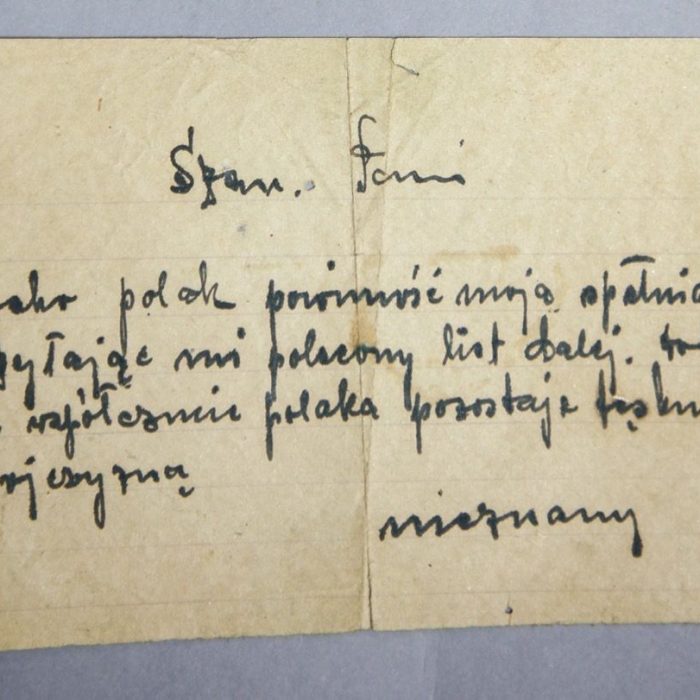 Szan. Pani
ako polak powinność moją spełnia
syłając mi polecony list dalej. 
współczucie polaka pozostaje tęskn
ojczyzną
nieznany